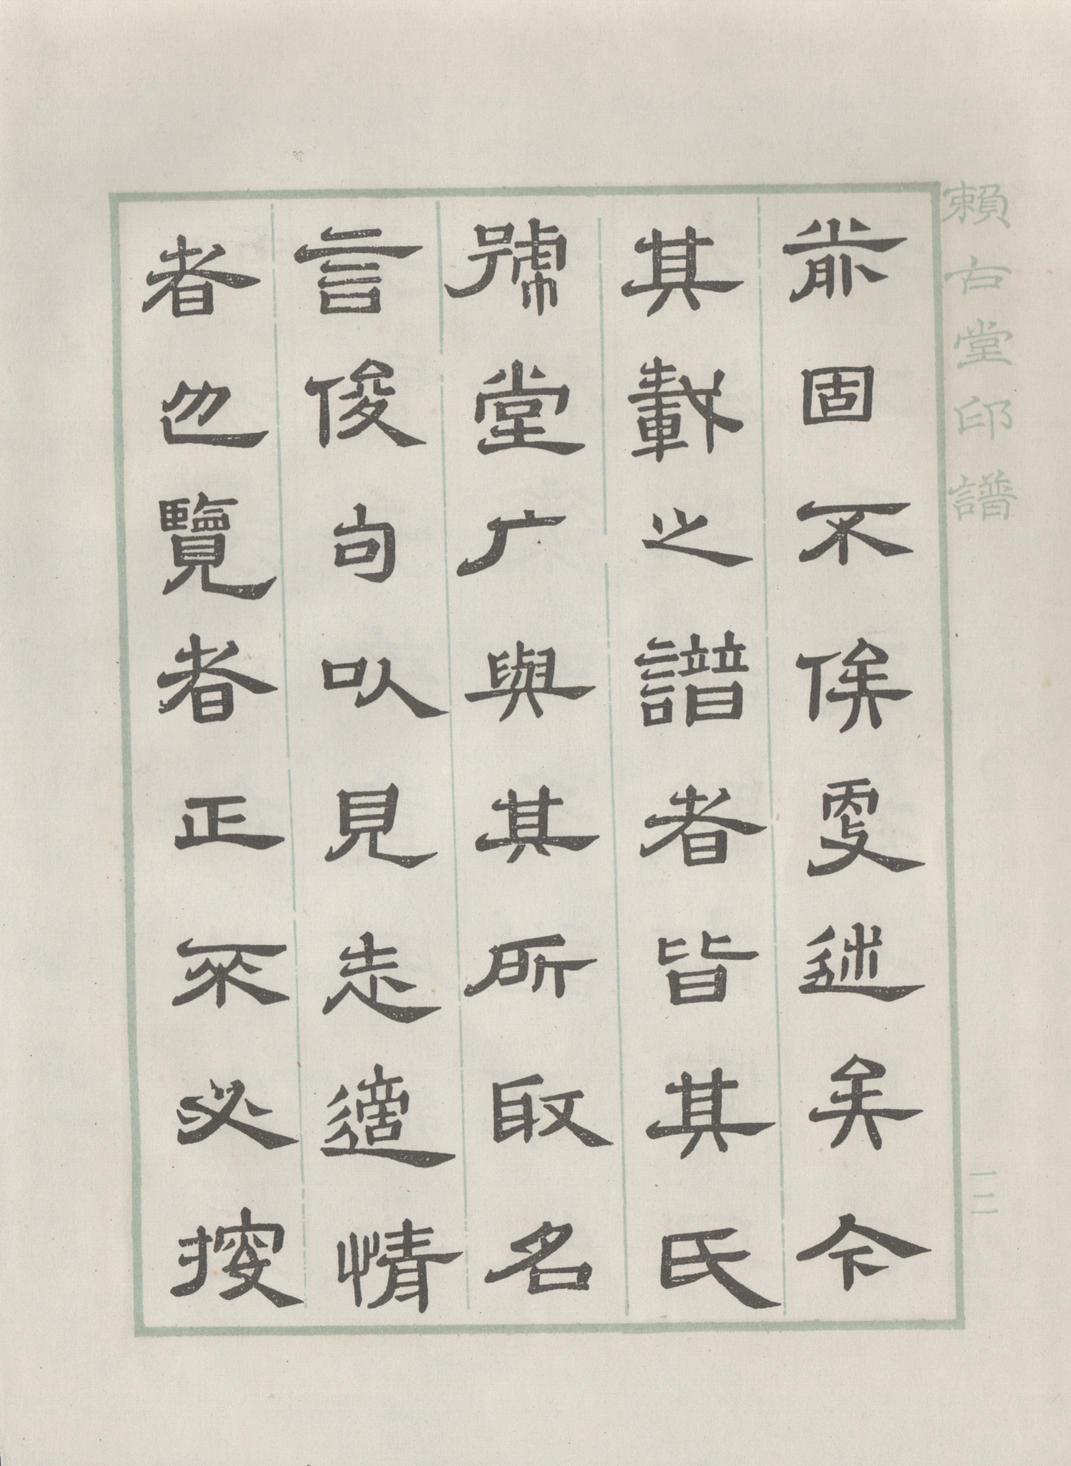 賴古堂印譜
前固不俟更述矣今
其載之譜者皆其氏
號堂广與其所取名
言俊句以見志適情
者也覽者正不必按
一二